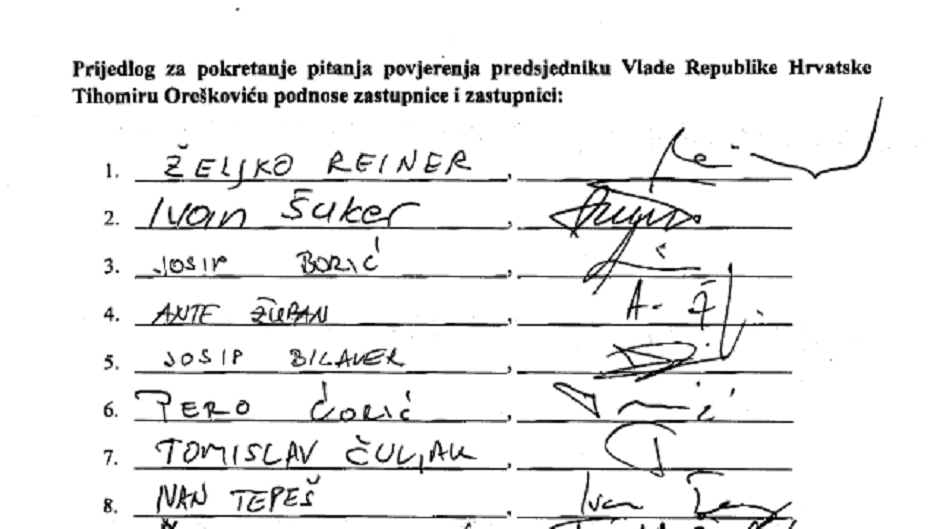 Prijedlog za pokretanje pitanja povjerenja predsjedniku Vlade Republike Hrvatske
Tihomiru Oreškoviću podnose zastupnice i zastupnici:
1. ŽELJKO REINER,
2. Ivan Šuker,
3. JOSIP BORIĆ,
4. ANTE ŽUPAN,
5. JOSIP BILAVER,
6. PERO ĆORIĆ,
7. TOMISLAV ČULJAK,
8. IVAN TEPEŠ, Ivan